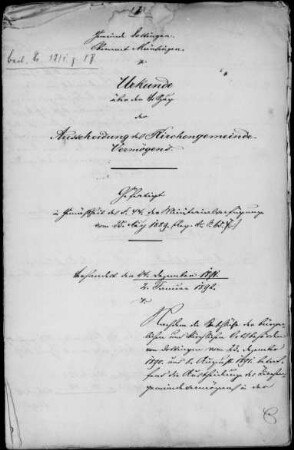 Gemeinde Dottingen.
Oberamt Münsingen.
Urkunde
über den Vollzug
der
Ausscheidung des Kirchengemeinde-
Vermögens.
Gefertigt
in Gemäßheit des § 44 der Ministerialverfügung
vom
Verhandelt den 24. Dezember 1891.
2. Januar 1892.
Nachdem die Beschlüsse der bürger-
lichen und kirchlichen Ortsbehörden
von Dottingen vom 23. Dezember
1890. und 6. August 1891. betref-
fend die Ausscheidung des Kirchen-
gemeindevermögens in der